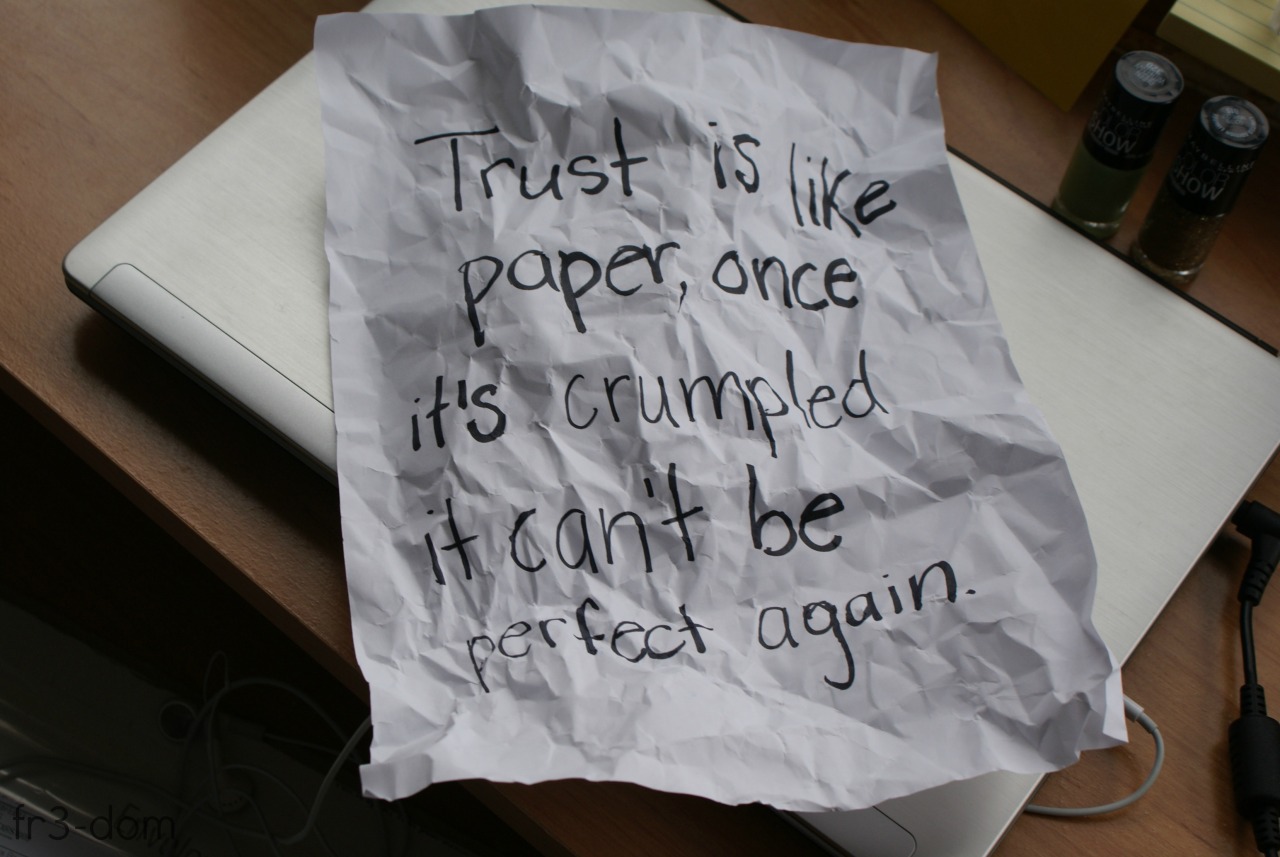 Trust is like
paper, once
it's crumpled
it can't be
perfect again.
SHOW
SHOW
fr3-d6m